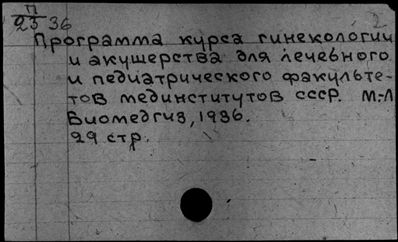 П
23 36
2
Программа курса гинекологии
и акушерства для лечебного
и педиатрического факульте-
тов мединститутов СССР. М.-Л
Биомедгиз, 1936.
29 стр.